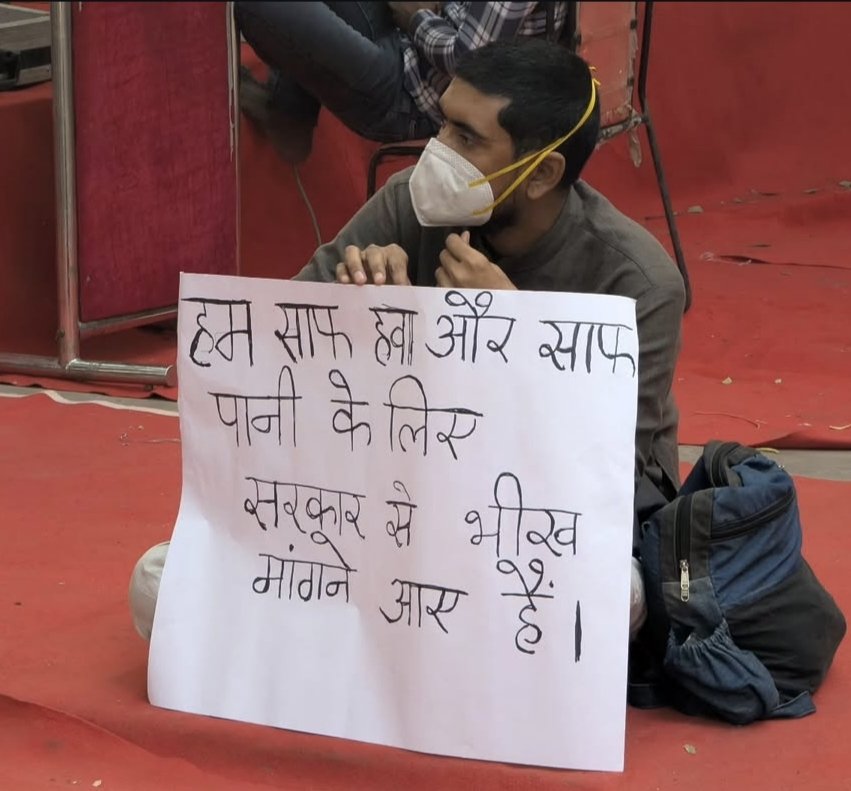 हम साफ हवा और साफ
पानी के लिए
सरकार से भीख
मांगने आए हैं।